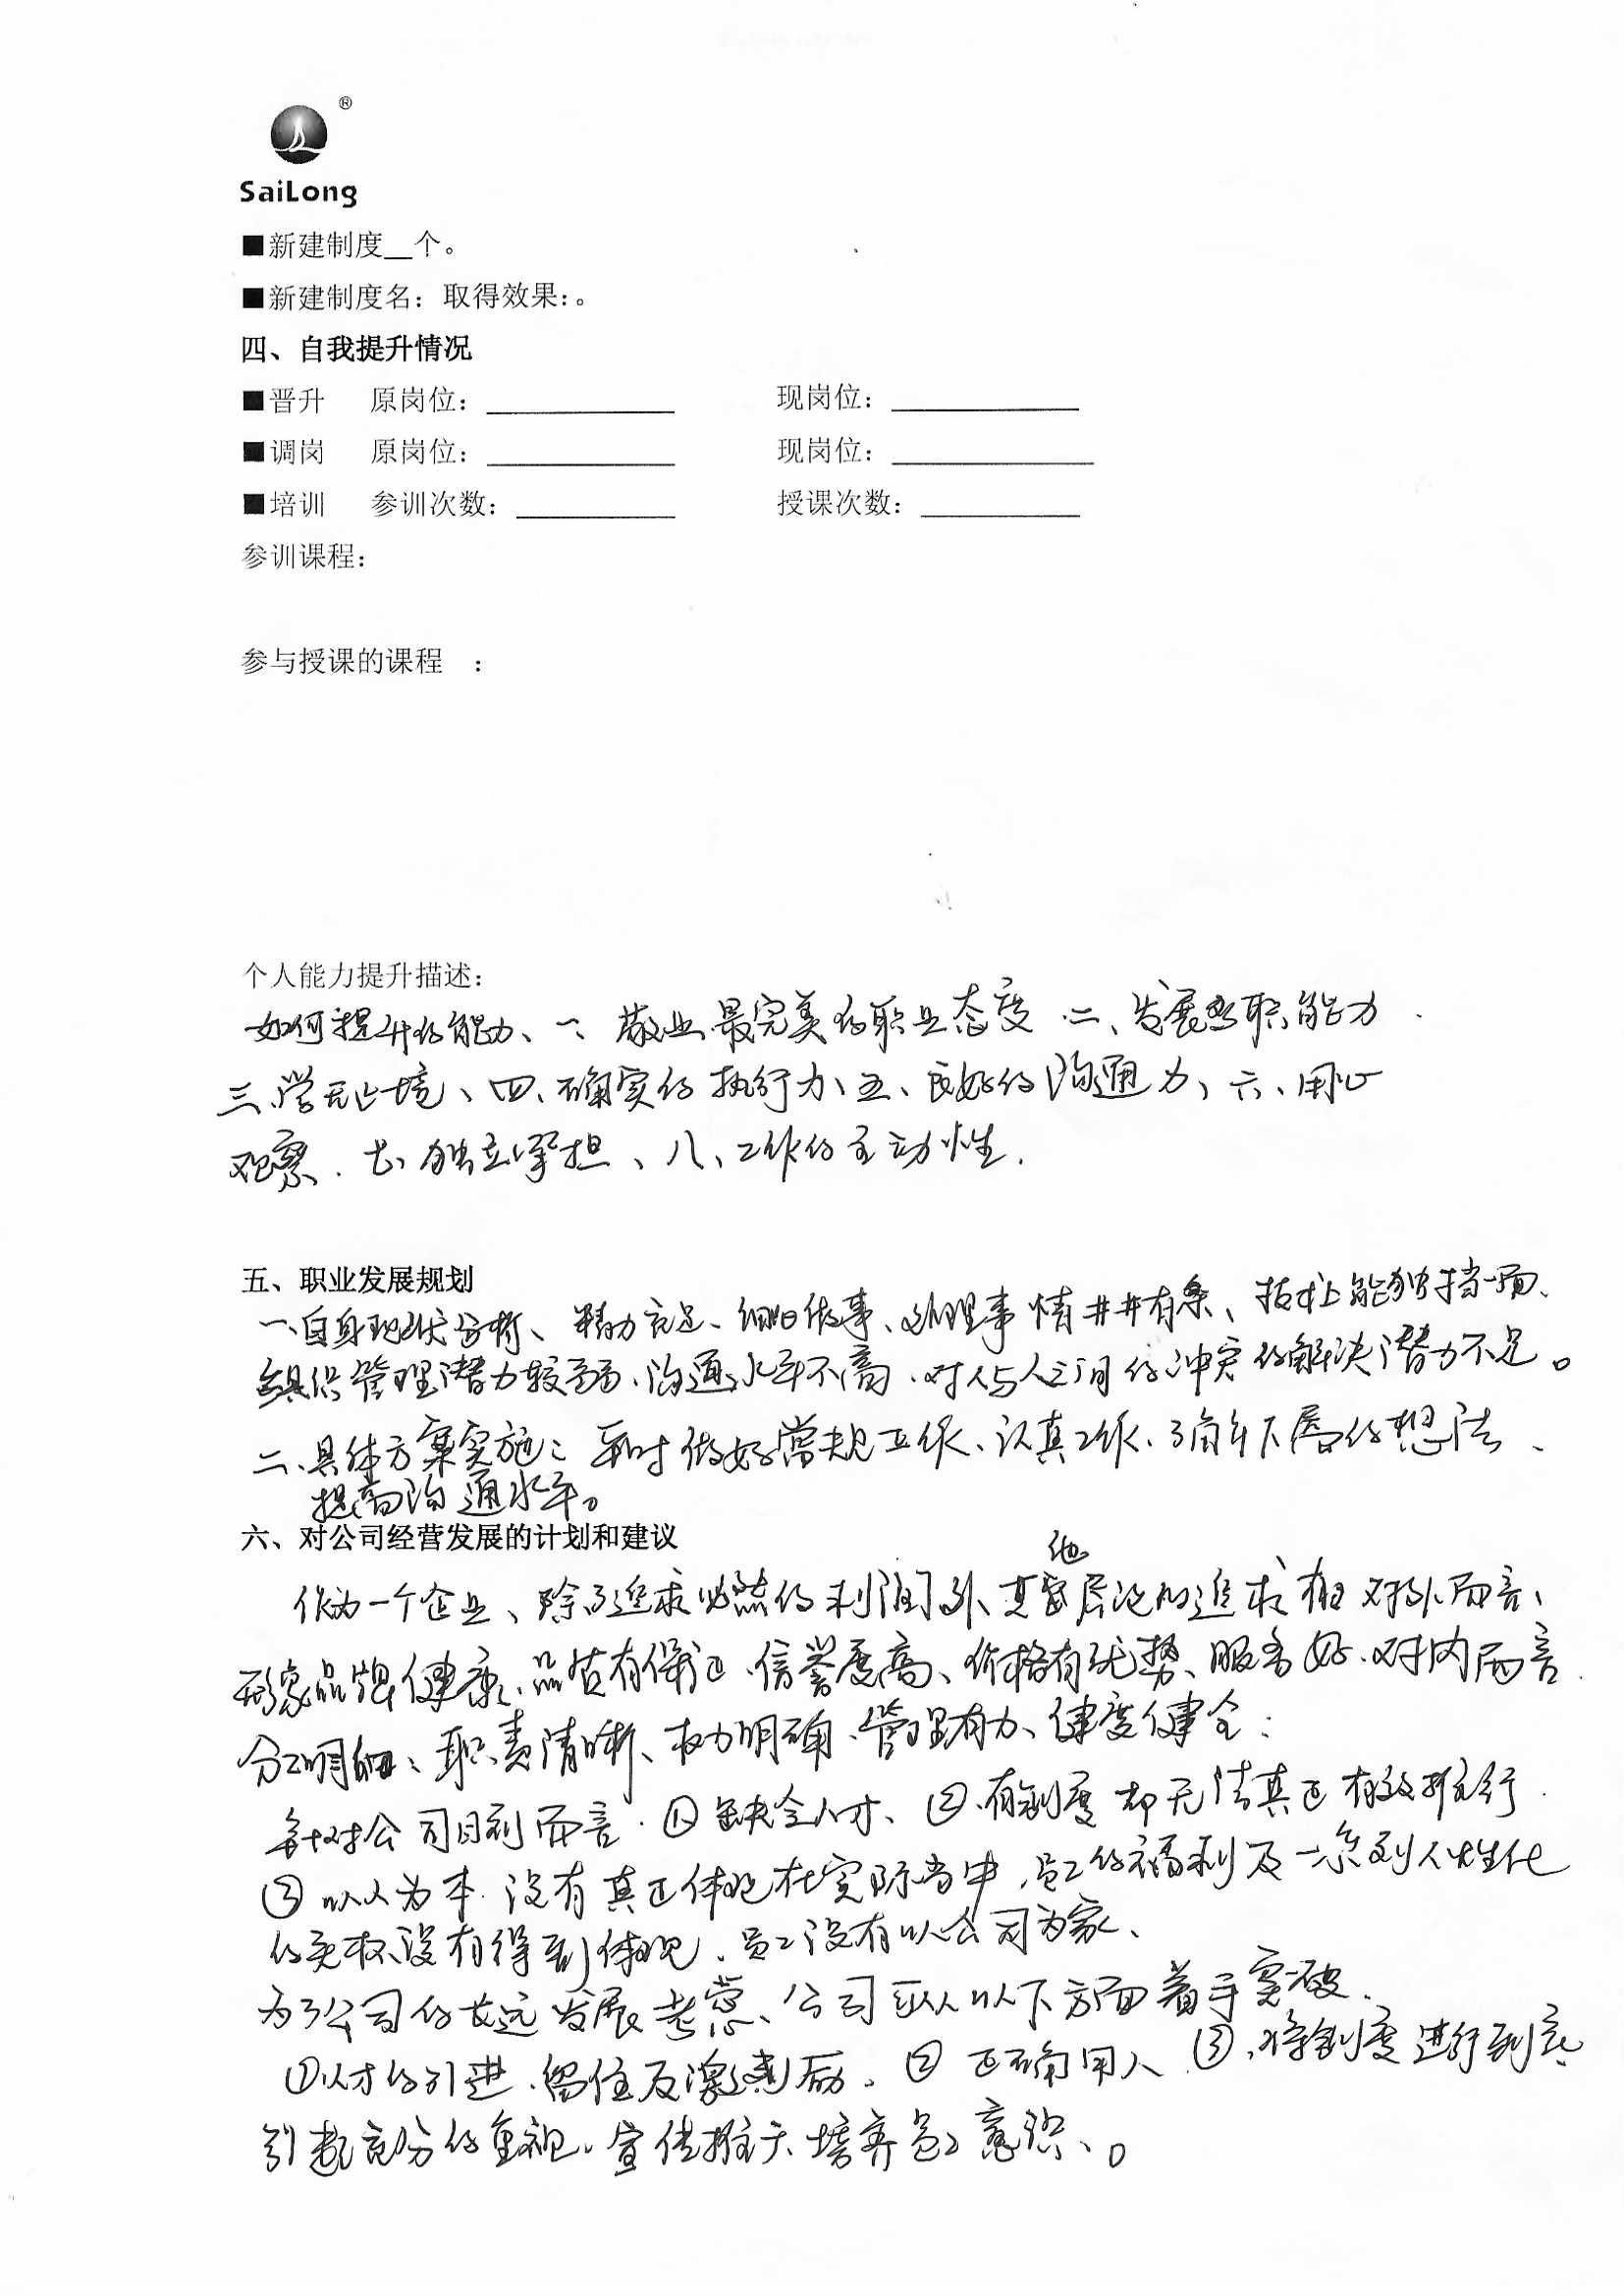 ®
SaiLong
■新建制度__个。
■新建制度名：取得效果：。
四、自我提升情况
■晋升 原岗位：____________ 现岗位：____________
■调岗 原岗位：____________ 现岗位：_____________
■培训 参训次数：__________ 授课次数：__________
参训课程：
参与授课的课程 ：
个人能力提升描述：
如何提升的能力、一、敬业最完美的职业态度 二、发展 职能力
三、学无止境、四、确实的执行力、五、良好的沟通力、六、用心
观察、七、独立承担、八、工作的主动性.
五、职业发展规划
一、自身现状分析、精力充足、细心做事、处理事情井井有条、技术上能独挡一面、
组织管理潜力较弱、沟通水平不高、对人与人之间的冲突的解决潜力不足。
二、具体方案实施：平时做好常规工作、认真工作、了解下属的想法、
提高沟通水平。
六、对公司经营发展的计划和建议
作为一个企业、除了追求必然的利润外、其他 的追求 对外而言、
形象品牌健康、品质有保证、信誉度高、价格有优势、服务好、对内而言
分工明细、职责清晰、权力明确、管理有力、健度健全：
针对公司目前而言、①缺乏人才、②有制度却无法真正有效推行
③以人为本、没有真正体现在实际当中，员工的福利及一系列人性化
的关怀没有得到体现、员工没有以公司为家、
为了公司的长远发展考虑、公司可从以下方面着手突破、
①人才的引进、留住及激励、②正确用人、③、将制度进行到底
引起充分的重视、宣传推广、培养员工意识、。